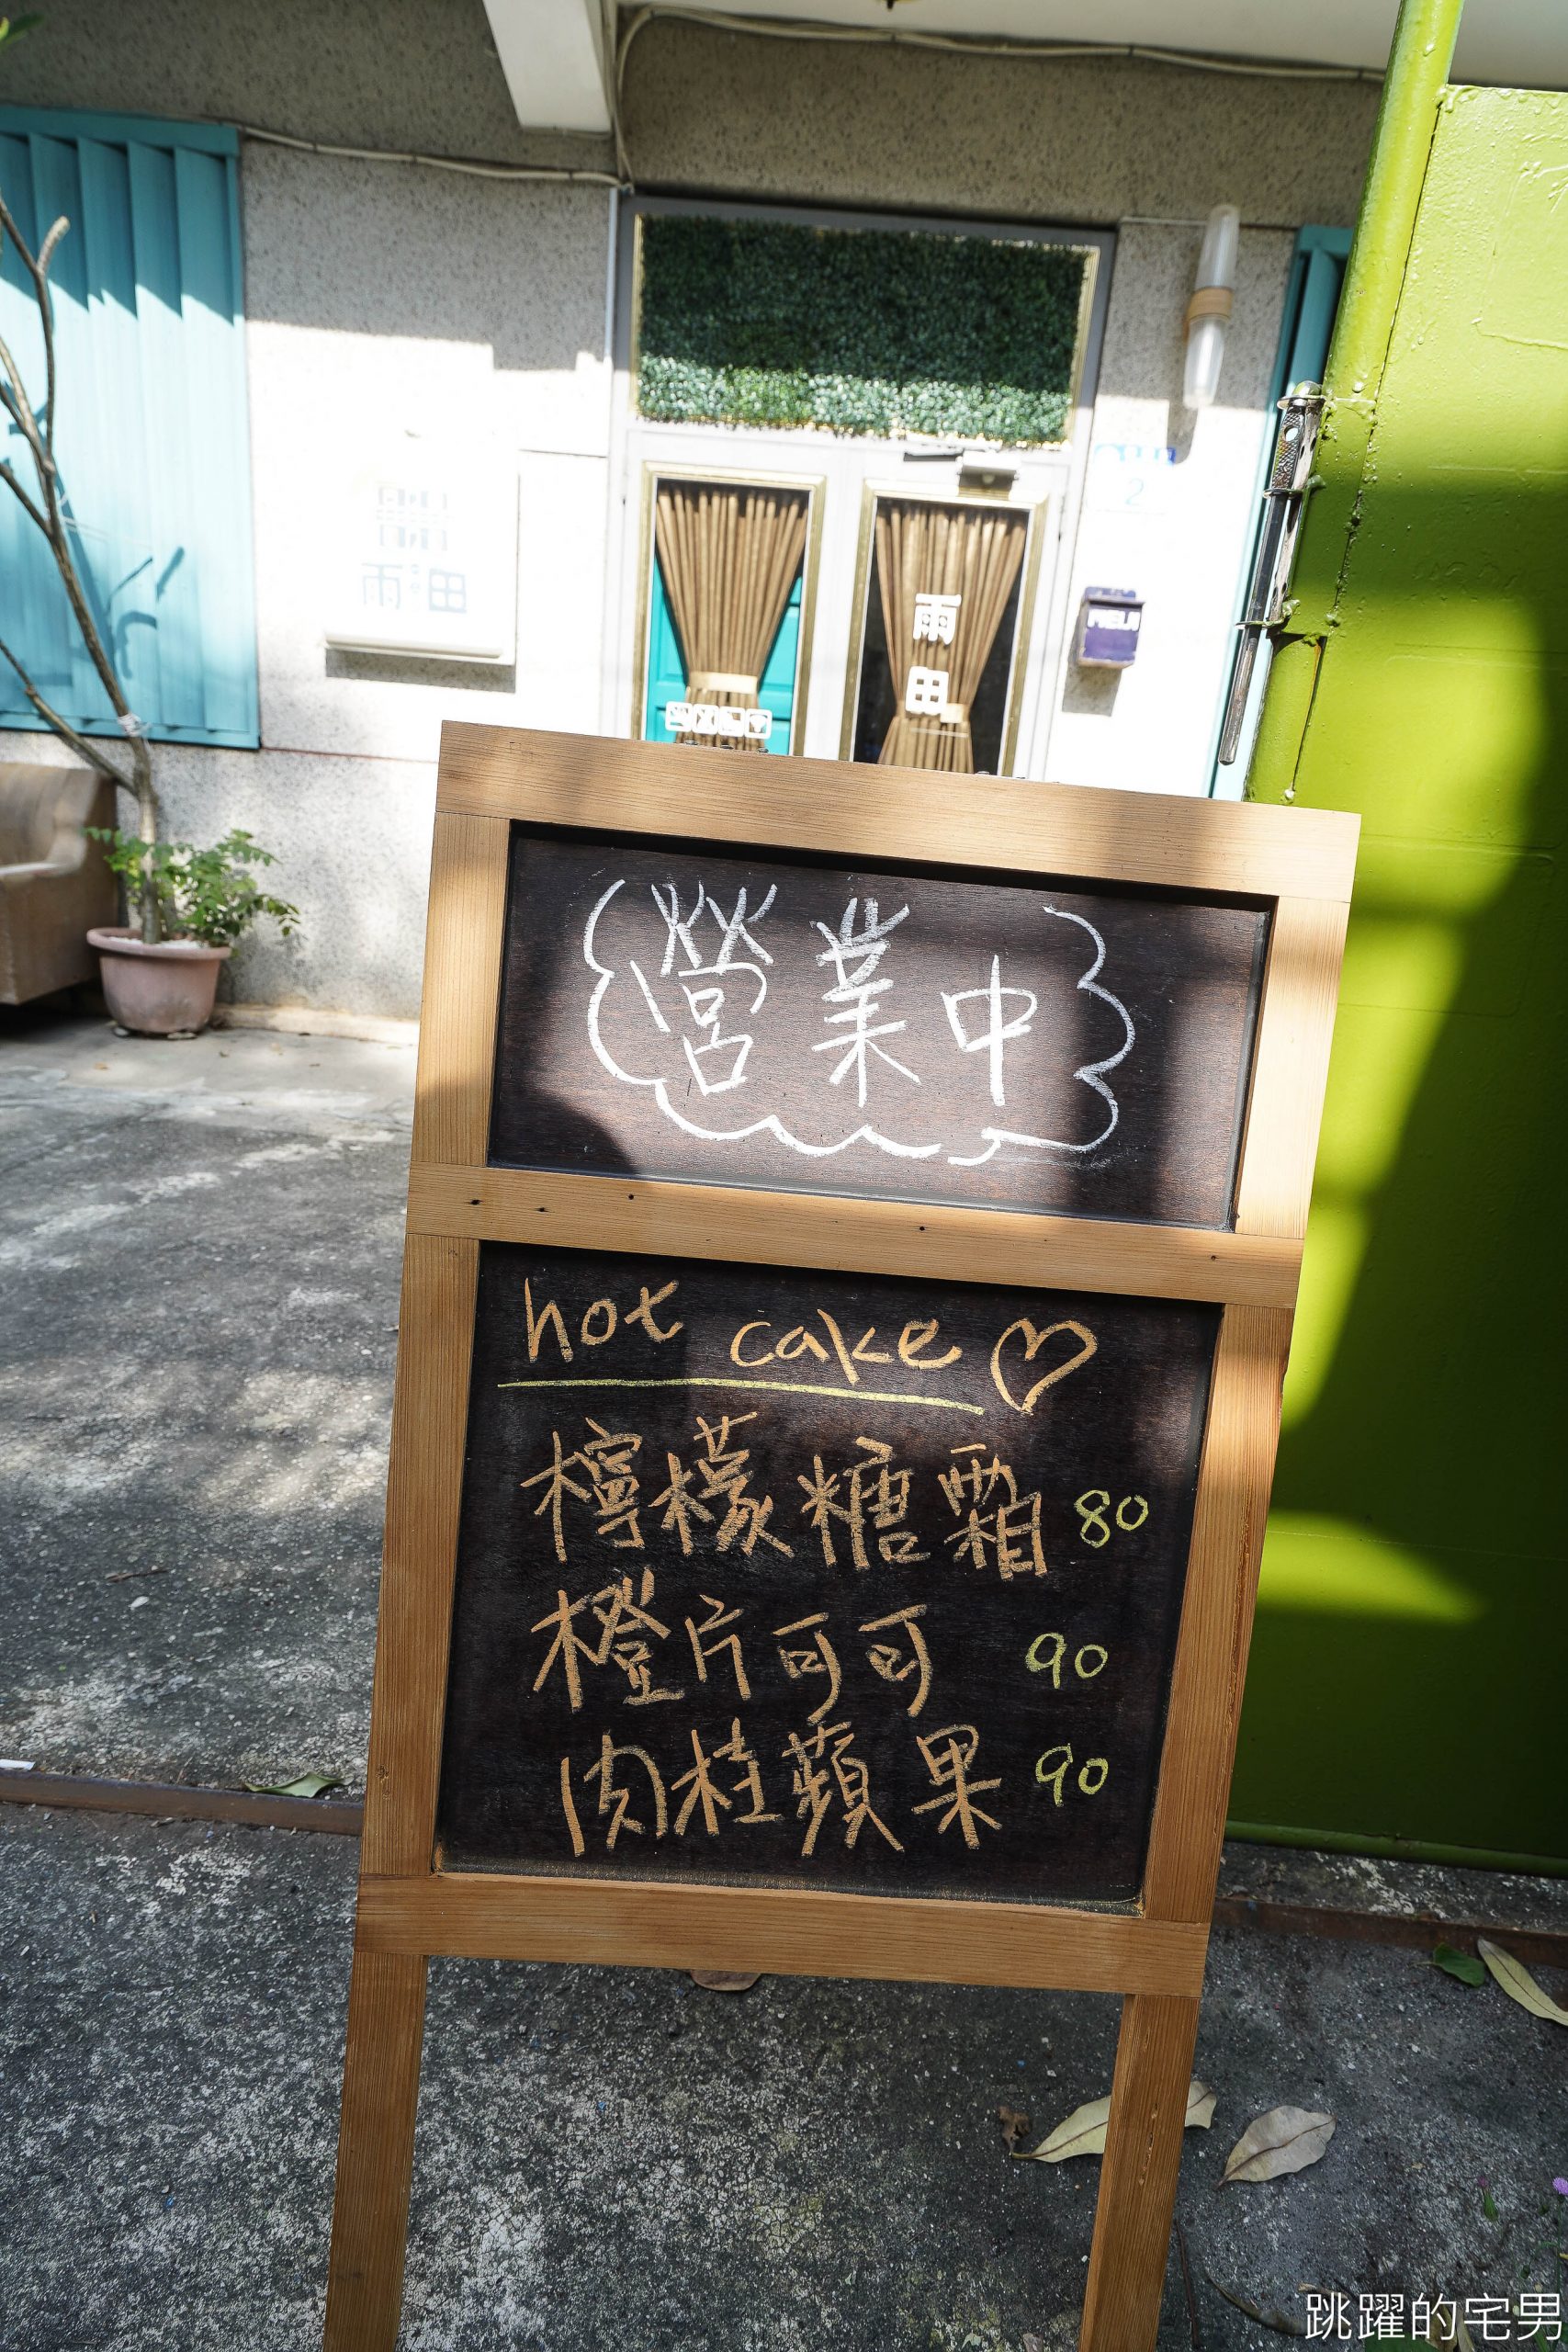 雨田
雨
田
2
MEIJI
營業中
hot cake
檸檬糖霜 80
橙片可可 90
肉桂蘋果 90
跳躍的宅男